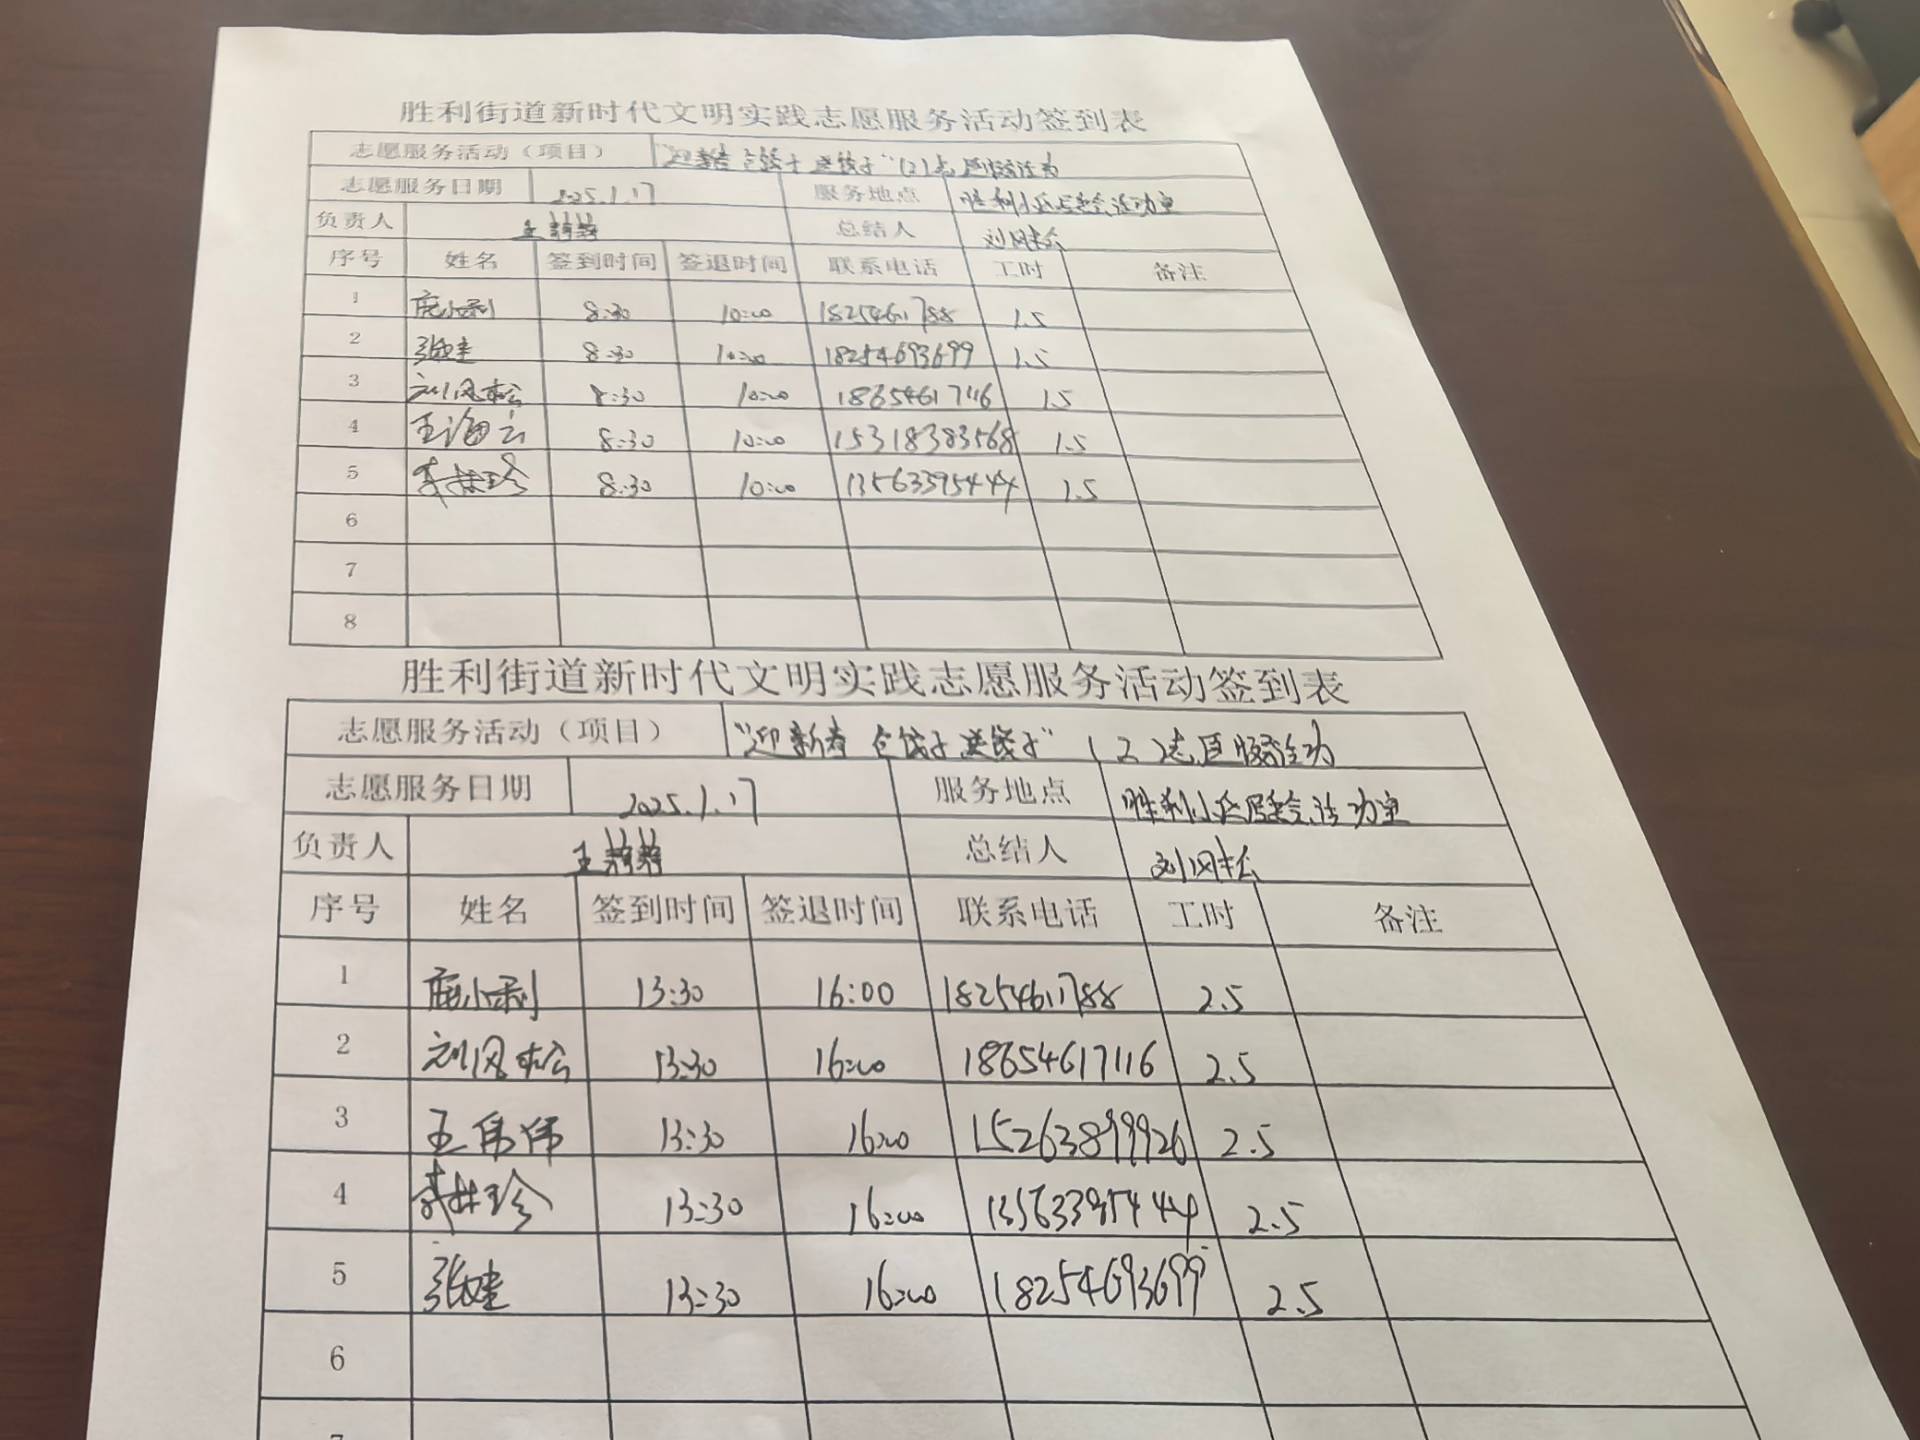 胜利街道新时代文明实践志愿服务活动签到表
志愿服务活动（项目） "迎新春 包饺子 送饺子"(2)志愿服务活动
志愿服务日期 2025.1.17 服务地点 胜利小区居委会活动室
负责人 王 总结人 刘风松
序号 姓名 签到时间 签退时间 联系电话 工时 备注
1 鹿小利 8:30 10:00 18254611788 1.5
2 张建 8:30 10:00 18254693699 1.5
3 刘风松 8:30 10:00 18654617116 1.5
4 王海云 8:30 10:00 15318383568 1.5
5 李林珍 8:30 10:00 13563395444 1.5
6
7
8
胜利街道新时代文明实践志愿服务活动签到表
志愿服务活动（项目） "迎新春 包饺子 送饺子"(2)志愿服务活动
志愿服务日期 2025.1.17 服务地点 胜利小区居委会活动室
负责人 王 总结人 刘风松
序号 姓名 签到时间 签退时间 联系电话 工时 备注
1 鹿小利 13:30 16:00 18254611788 2.5
2 刘风松 13:30 16:00 18654617116 2.5
3 王伟伟 13:30 16:00 15263899926 2.5
4 李林珍 13:30 16:00 13563395444 2.5
5 张建 13:30 16:00 18254693699 2.5
6